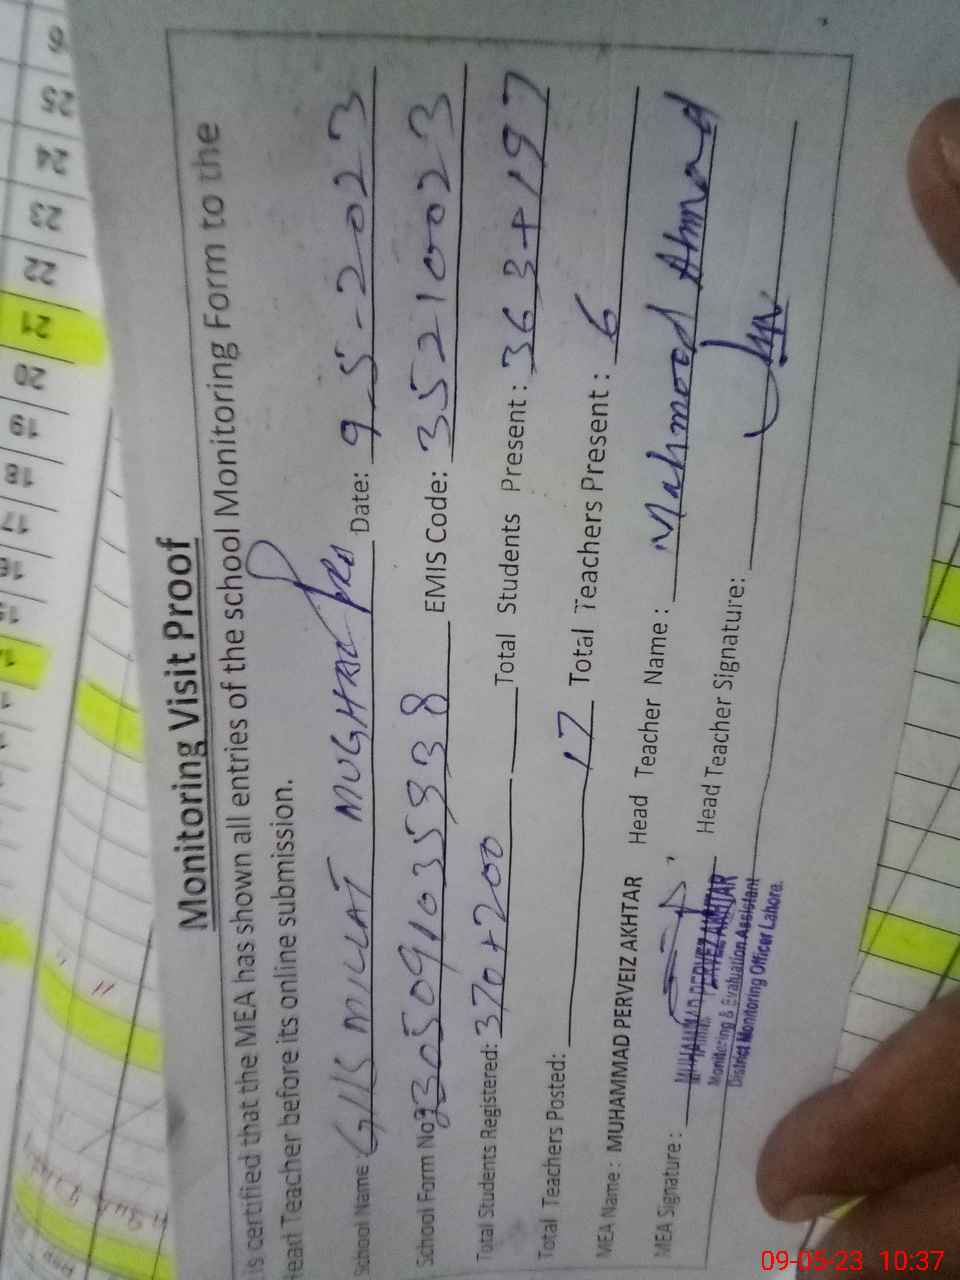 Monitoring Visit Proof
is certified that the MEA has shown all entries of the school Monitoring Form to the
Head Teacher before its online submission.
School Name MILLAT MUGHAL Date: 9-5-2023
School Form No. EMIS Code: 35210023
Total Students Registered: 370+200 Total Students Present: 363+197
Total Teachers Posted: 17 Total Teachers Present: 6
MEA Name: MUHAMMAD PERVEIZ AKHTAR Head Teacher Name: Mahmood Ahmad
MEA Signature: Head Teacher Signature:
MUHAMMAD PERVEZ AKHTAR
Monitoring & Evaluation Assistant
District Monitoring Officer Lahore.
25
24
23
22
21
20
19
18
17
16
09-05-23 10:37